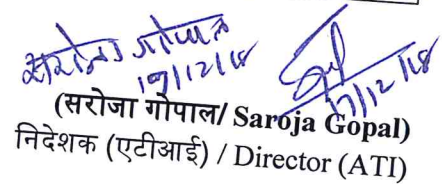 सरोजा गोपाल
19/12/18
17/12/18
(सरोजा गोपाल/ Saroja Gopal)
निदेशक (एटीआई) / Director (ATI)